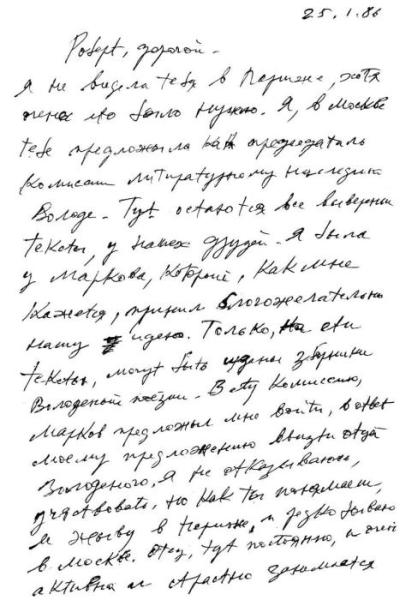 25.1.86
Роберт, дорогой -
Я не видела тебя в Париже, хотя
мне это было нужно. Я, в Москве
тебе предложила как председатель
комиссии литературному наследию
Володе. Тут остаются все выверенны
тексты, у наших друзей. Я была
у Маркова, который, как мне
кажется, принил благожелательно
нашу идею. Только, на эти
тексты, могут быть изданы збурники
Володеной поэзии. В эту комиссию,
Марков предложил мне войти, в ответ
моему предложению ввизти отца
Володеного, я не отказываюсь,
участвовать, но как ты понимаеш,
я жыву в Париже, и редко бываю
в Москве. Отец, тут постоянно, и очень
активна и страстно занимается